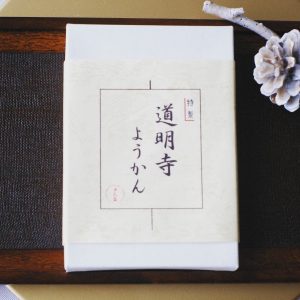 特製
道明寺
ようかん